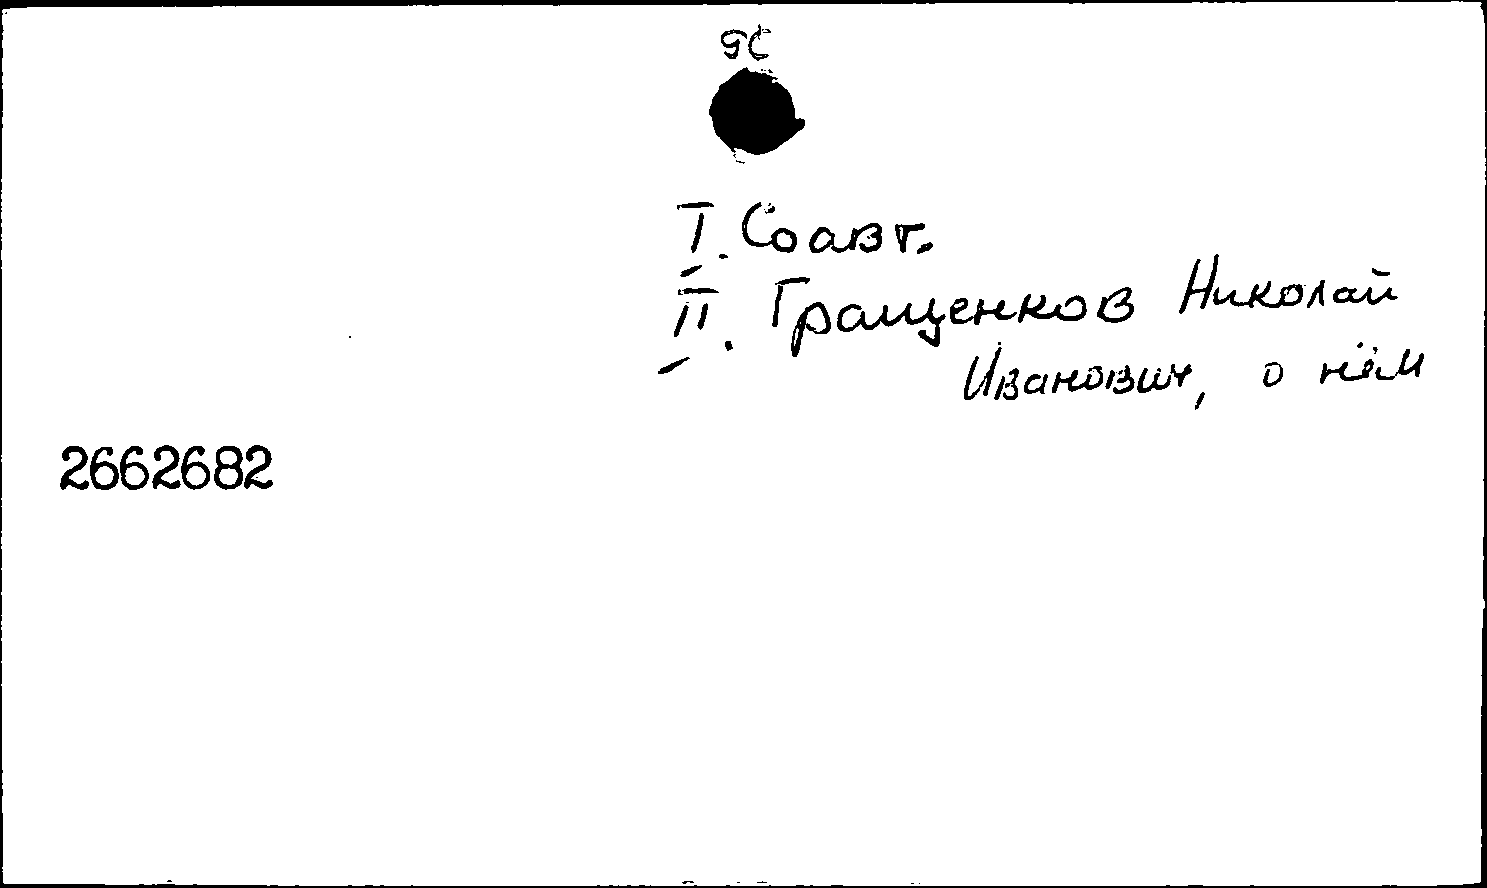 I. Соавт.
II. Гращенков Николай
Иванович, о нём
2662682